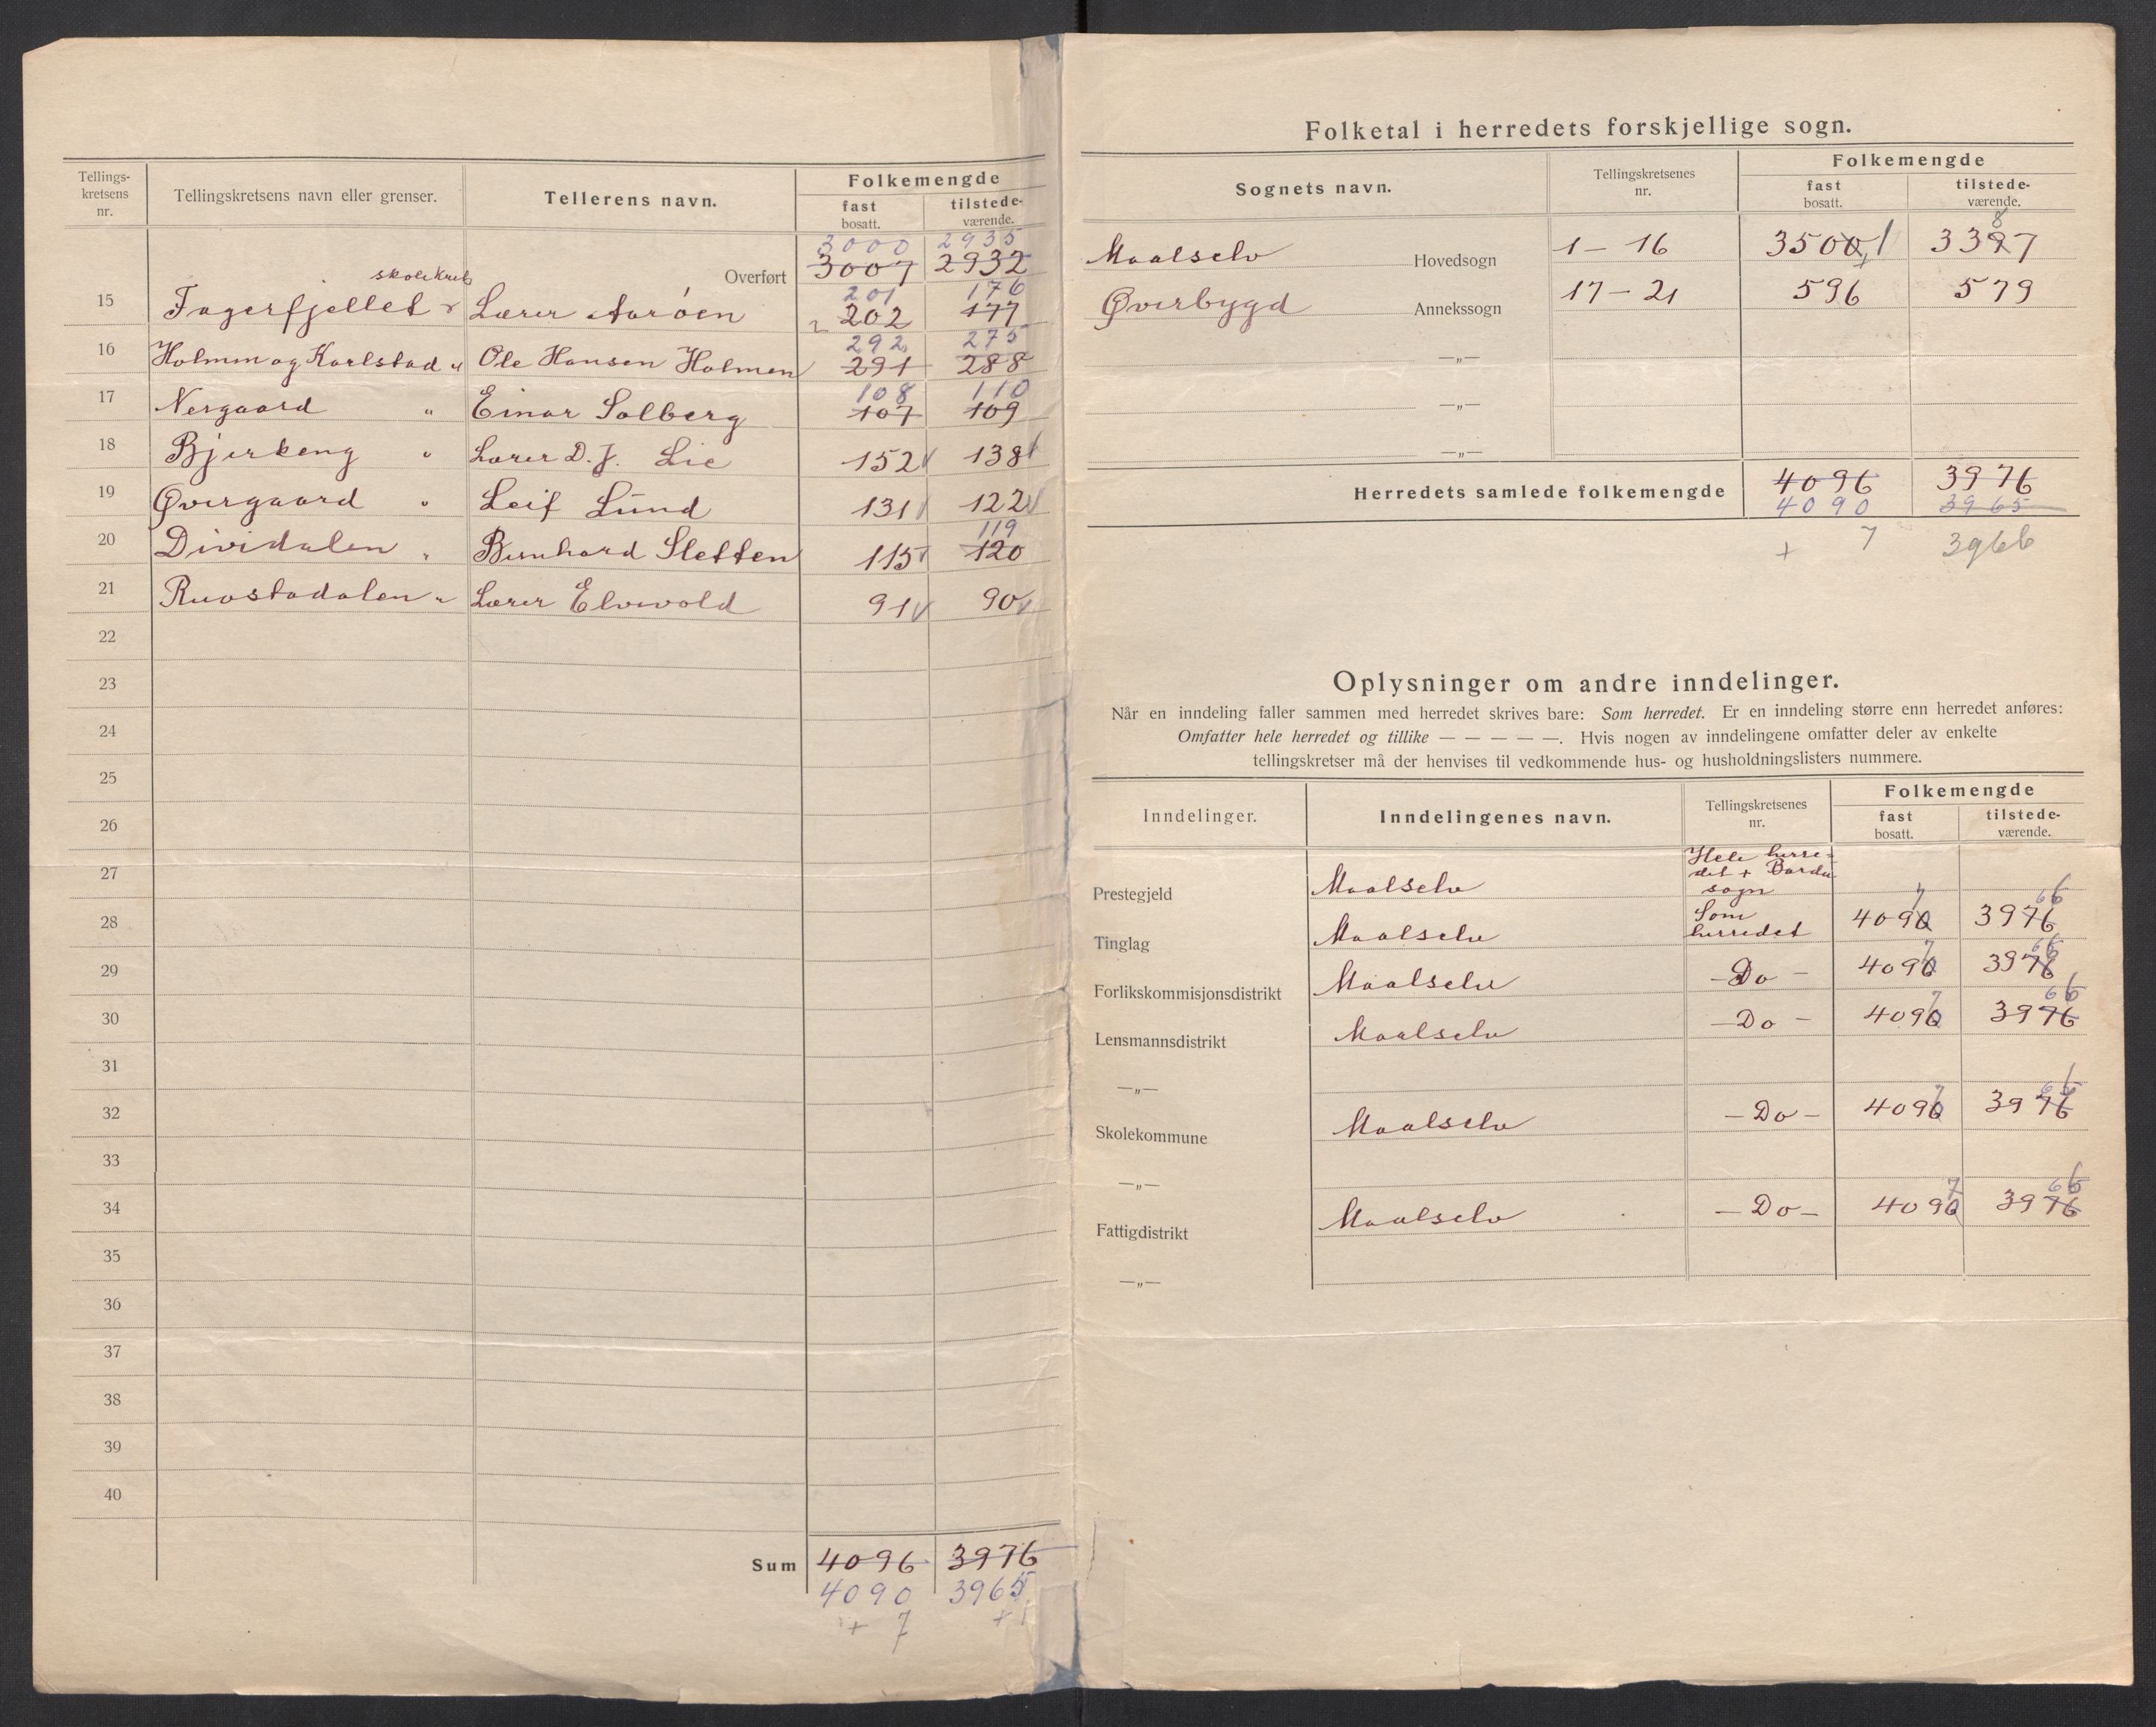 Tellings-
kretsens
nr.
Tellingskretsens navn eller grenser.
Tellerens navn.
Folkemengde
fast
bosatt.
tilstede-
værende.
3000 2935
Overført 3007 2932
skolekrets
201 176
15 Fagerfjellet " Lærer Aarøen 202 177
292 275
16 Holmen og Karlstad " Ole Hansen Holmen 291 288
108 110
17 Nergaard " Einar Solberg 107 109
18 Bjerkeng " Lærer D. J. Lie 152 138
19 Øvergaard " Leif Lund 131 122
119
20 Dividalen " Bernhard Sletten 115 120
21 Ruostadalen " Lærer Elvevold 91 90
22
23
24
25
26
27
28
29
30
31
32
33
34
35
36
37
38
39
40
Sum 4096 3976
4090 3965
+ 7 + 1
Folketal i herredets forskjellige sogn.
Sognets navn.
Tellingskretsenes
nr.
Folkemengde
fast
bosatt.
tilstede-
værende.
8
Maalselv Hovedsogn 1 - 16 3500 1 3397
Øverbygd Annekssogn 17 - 21 596 579
—„—
—„—
—„—
Herredets samlede folkemengde 4096 3976
4090 3965
+ 7 3966
Oplysninger om andre inndelinger.
Når en inndeling faller sammen med herredet skrives bare: Som herredet. Er en inndeling større enn herredet anføres:
Omfatter hele herredet og tillike — — — — —. Hvis nogen av inndelingene omfatter deler av enkelte
tellingskretser må der henvises til vedkommende hus- og husholdningslisters nummere.
Inndelinger.
Inndelingenes navn.
Tellingskretsenes
nr.
Folkemengde
fast
bosatt.
tilstede-
værende.
Prestegjeld Maalselv Hele herre-
det + Bardu
sogn
7 66
Tinglag Maalselv Som
herredet 4090 3976
7 66
Forlikskommisjonsdistrikt Maalselv - Do - 4090 3976
7 66
Lensmannsdistrikt Maalselv - Do - 4090 3976
—„—
7 66
Skolekommune Maalselv - Do - 4090 3976
—„—
7 66
Fattigdistrikt Maalselv - Do - 4090 3976
—„—